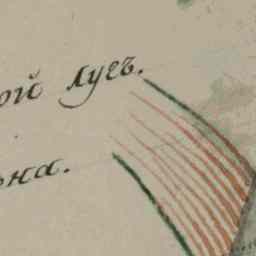 ой лугъ.
ьна.